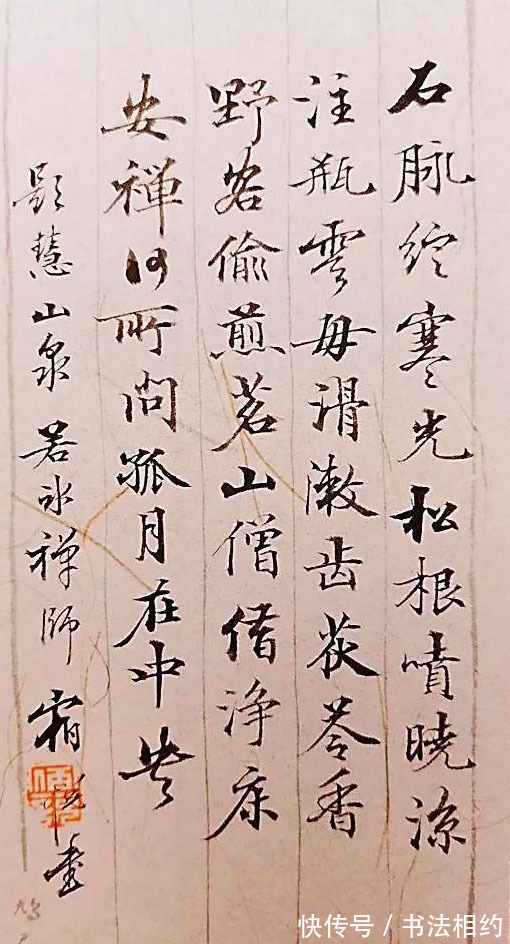 石脉绽寒光松根噴晓涼
注瓶雲母滑漱齿茯苓香
野客偷煎茗山僧借净床
安禅何所问孤月在中央
题慧山泉 若水禅师
快传号 / 书法相约